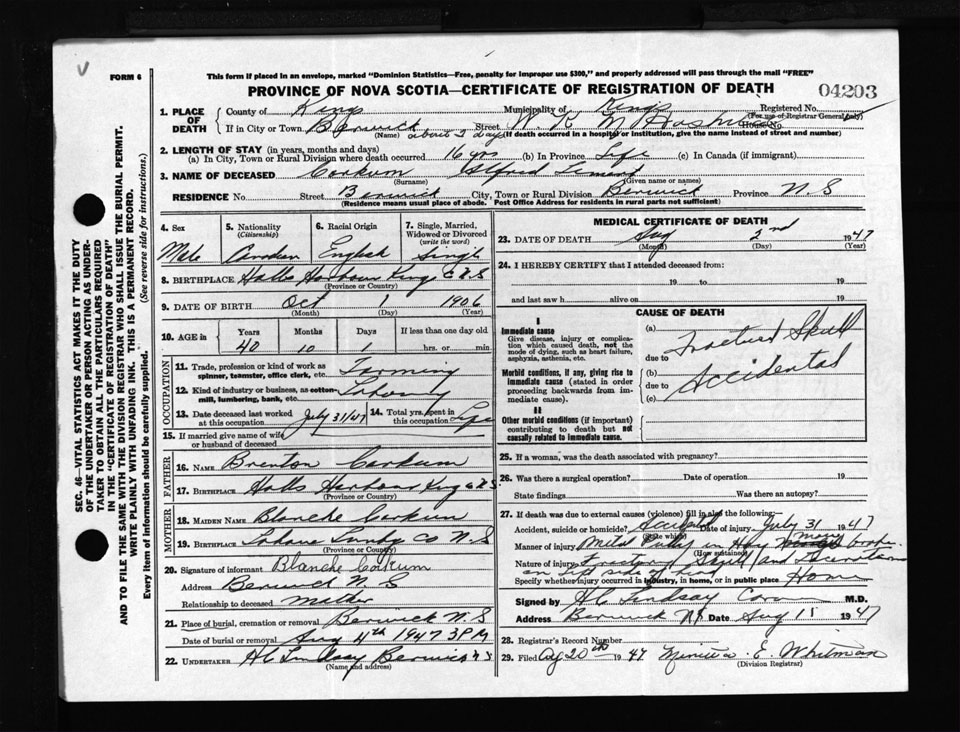 FORM 6
This form if placed in an envelope, marked "Dominion Statistics—Free, penalty for improper use $300," and properly addressed will pass through the mail "FREE"
PROVINCE OF NOVA SCOTIA—CERTIFICATE OF REGISTRATION OF DEATH 04203
SEC. 46—VITAL STATISTICS ACT MAKES IT THE DUTY
OF THE UNDERTAKER OR PERSON ACTING AS UNDER-
TAKER TO OBTAIN ALL THE PARTICULARS REQUIRED
IN THE "CERTIFICATE OF REGISTRATION OF DEATH"
AND TO FILE THE SAME WITH THE DIVISION REGISTRAR WHO SHALL ISSUE THE BURIAL PERMIT.
WRITE PLAINLY WITH UNFADING INK. THIS IS A PERMANENT RECORD.
Every item of information should be carefully supplied. (See reverse side for instructions.)
1. PLACE OF DEATH
County of Kings Municipality of Kings Registered No.
(For use of Registrar General only)
If in City or Town Berwick Street W. K. M Hosp House No.
(Name) about 3 days (If death occurred in a hospital or institution, give the name instead of street and number)
2. LENGTH OF STAY (in years, months and days)
(a) In City, Town or Rural Division where death occurred 16 yrs (b) In Province Life (c) In Canada (if immigrant)
3. NAME OF DECEASED Corkum Alfred
(Surname) (Given name or names)
RESIDENCE No. Street Berwick City, Town or Rural Division Berwick Province N. S
(Residence means usual place of abode. Post Office Address for residents in rural parts not sufficient)
4. Sex Male
5. Nationality (Citizenship) Canadian
6. Racial Origin English
7. Single, Married, Widowed or Divorced (write the word) Single
8. BIRTHPLACE Halls Harbour Kings Co N S
(Province or Country)
9. DATE OF BIRTH Oct 1 1906
(Month) (Day) (Year)
10. AGE in Years 40 Months 10 Days 1 If less than one day old hrs. or min
OCCUPATION
11. Trade, profession or kind of work as spinner, teamster, office clerk, etc. Farming
12. Kind of industry or business, as cotton-mill, lumbering, bank, etc.
13. Date deceased last worked at this occupation July 31/47 14. Total yrs. spent in this occupation Life
15. If married give name of wife or husband of deceased
FATHER
16. NAME Brenton Corkum
17. BIRTHPLACE Halls Harbour Kings Co N S.
(Province or Country)
MOTHER
18. MAIDEN NAME Blanche Corkum
19. BIRTHPLACE Co N. S
(Province or Country)
20. Signature of informant Blanche Corkum
Address Berwick N. S
Relationship to deceased mother
21. Place of burial, cremation or removal Berwick N. S
Date of burial or removal Aug 4th 1947 3 P M
22. UNDERTAKER H C Lindsay Berwick N S
(Name and address)
MEDICAL CERTIFICATE OF DEATH
23. DATE OF DEATH Aug 2nd 1947
(Month) (Day) (Year)
24. I HEREBY CERTIFY that I attended deceased from:
19 to 19
and last saw h alive on 19
CAUSE OF DEATH
I
Immediate cause
Give disease, injury or complication which caused death, not the mode of dying, such as heart failure, asphyxia, asthenia, etc.
Morbid conditions, if any, giving rise to immediate cause (stated in order proceeding backwards from immediate cause).
II
Other morbid conditions (if important) contributing to death but not causally related to immediate cause.
(a) Fractured Skull
due to
(b) Accidental
due to
(c)
25. If a woman, was the death associated with pregnancy?
26. Was there a surgical operation? Date of operation 19
State findings Was there an autopsy?
27. If death was due to external causes (violence) fill in also the following:
Accident, suicide or homicide? Accident Date of injury July 31 1947
(State which)
Manner of injury Metal Pully in Hay broke
(How sustained)
Nature of injury Fracture Skull and
on left side of
Specify whether injury occurred in industry, in home, or in public place Home
Signed by H C Lindsay Coroner M.D.
Address Berwick N S Date Aug 15 1947
28. Registrar's Record Number
29. Filed Aug 20th 1947 E. Whitman
(Division Registrar)